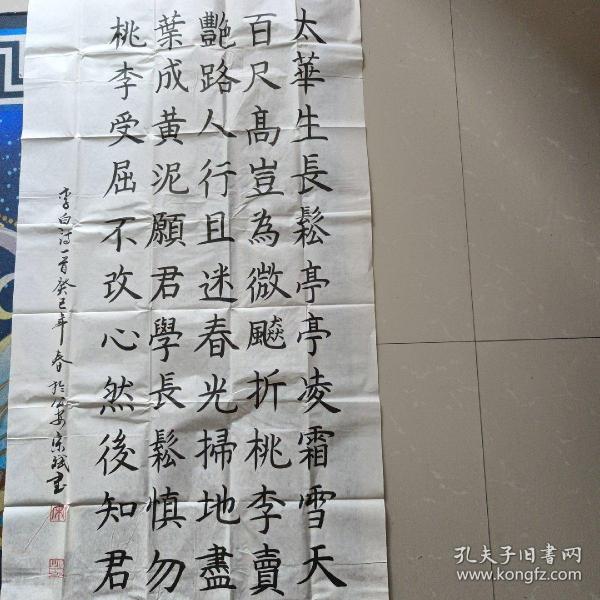 太華生長鬆亭亭凌霜雪天
百尺高豈為微飈折桃李賣
艷路人行且迷春光掃地盡
葉成黃泥願君學長鬆慎勿
桃李受屈不改心然後知君
李白詩一首癸巳年春於
書
孔夫子旧書网
www.kongfz.com